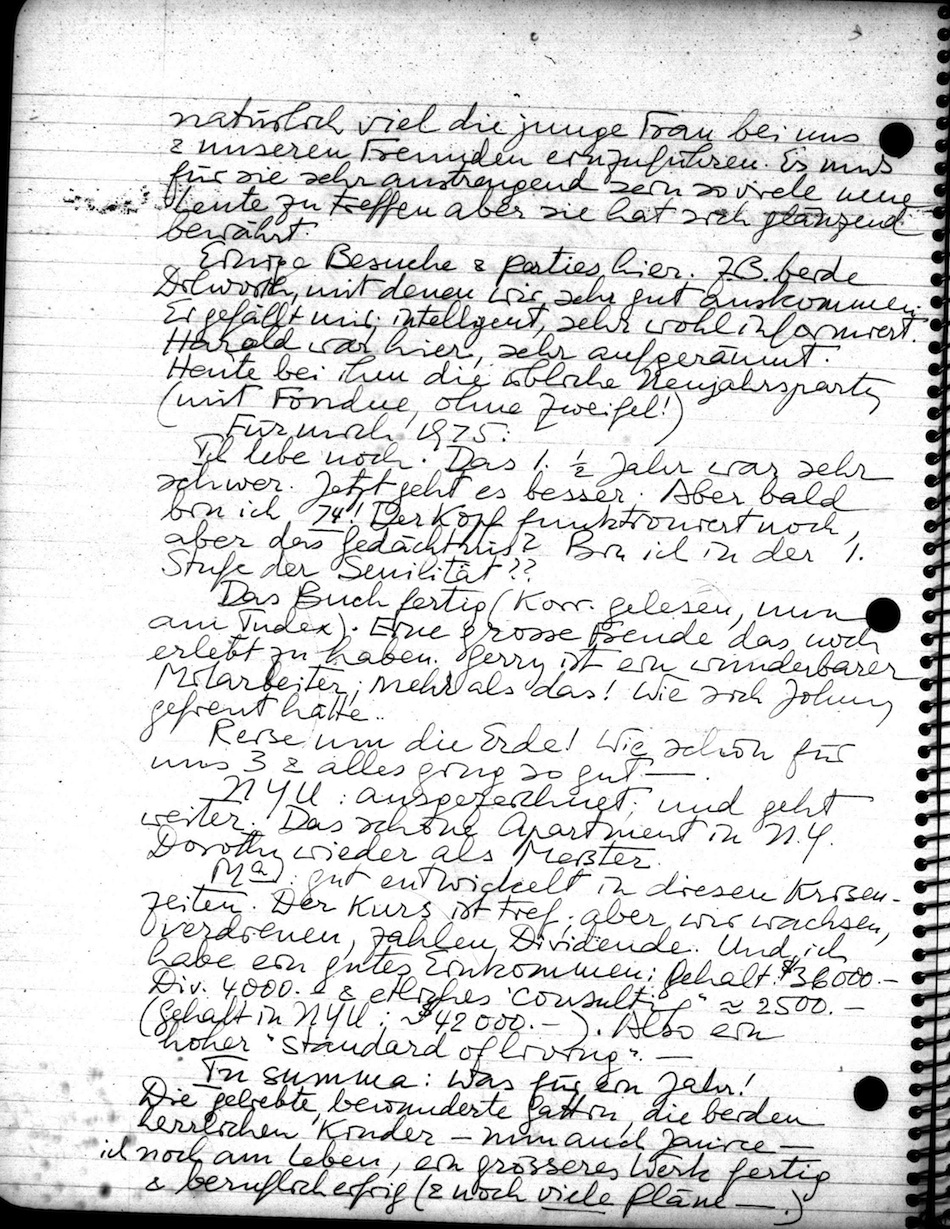 natürlich viel die junge Frau bei uns
& unseren Freunden einzuführen. Es muss
für sie sehr anstrengend sein so viele neue
Leute zu treffen aber sie hat sich glänzend
bewährt.
Einige Besuche & parties hier. Z.B. beide
Dilworth, mit denen wir sehr gut auskommen.
Er gefällt mir; intelligent, sehr wohl informiert.
Harold war hier, sehr aufgeräumt.
Heute bei ihm die übliche Neujahrsparty
(mit Fondue, ohne Zweifel!)
Für mich 1975:
Ich lebe noch. Das 1. ½ Jahr war sehr
schwer. Jetzt geht es besser. Aber bald
bin ich 74! Der Kopf funktioniert noch,
aber das Gedächtnis? Bin ich in der 1.
Stufe der Senilität??
Das Buch fertig (Korr. gelesen, nun
am Index). Eine grosse Freude das noch
erlebt zu haben. Gerry ist ein wunderbarer
Mitarbeiter; mehr als das! Wie sich Johnny
gefreut hätte..
Reise um die Erde! Wie schön für
uns 3 & alles ging so gut —.
NYU: ausgezeichnet; und geht
weiter. Das schöne Apartment in N.Y.
Dorothy wieder als Meister.
Ma): gut entwickelt in diesen Krisen-
zeiten. Der Kurs ist tief; aber wir wachsen,
verdienen, zahlen Dividende. Und ich
habe ein gutes Einkommen: Gehalt $36000.-
Div. 4000.- & etliches "Consulting" ≈ 2500.-
(Gehalt in NYU: ~$42000.-). Also ein
hoher "Standard of living". —
In summa: Was für ein Jahr!
Die geliebte, bewunderte Gattin, die beiden
herrlichen Kinder – nun auch Janice –
ich noch am Leben, ein grösseres Werk fertig
& beruflich eifrig (& noch viele Pläne —.)